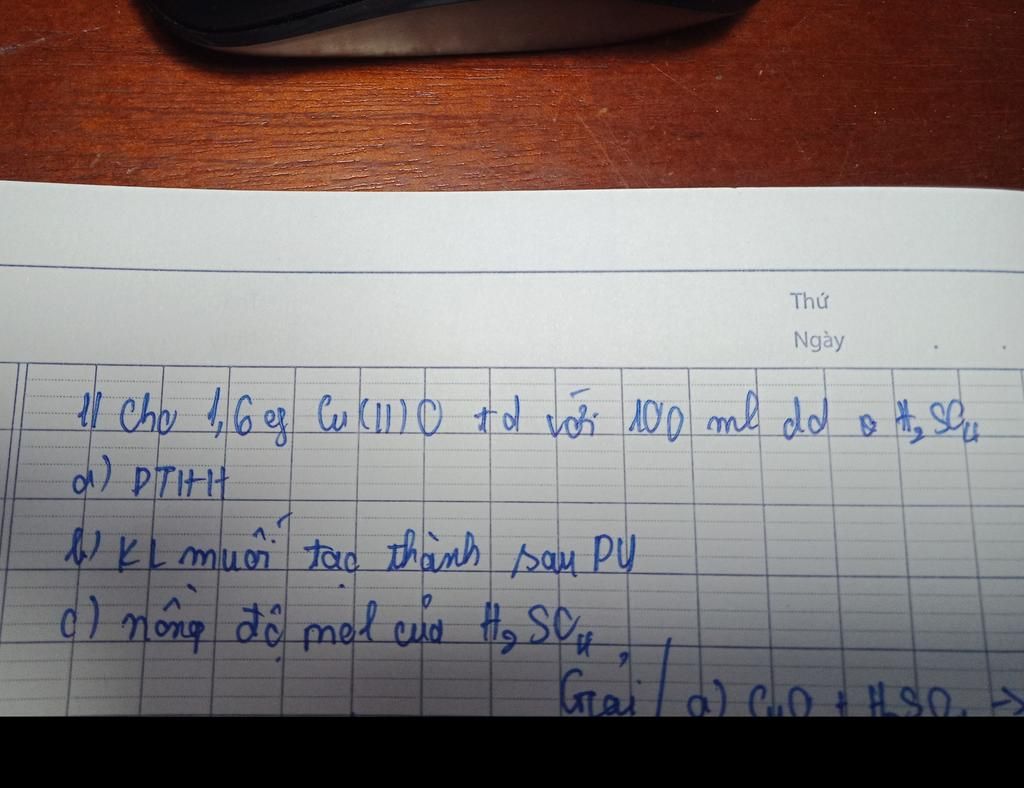 Thứ
Ngày
1/ Cho 1,6 g Cu(II)O td với 100 ml dd H₂SO₄
a) PTHH
b) KL muối tạo thành sau PƯ
c) nồng độ mol của H₂SO₄
Giải / a) CuO + H₂SO₄ →